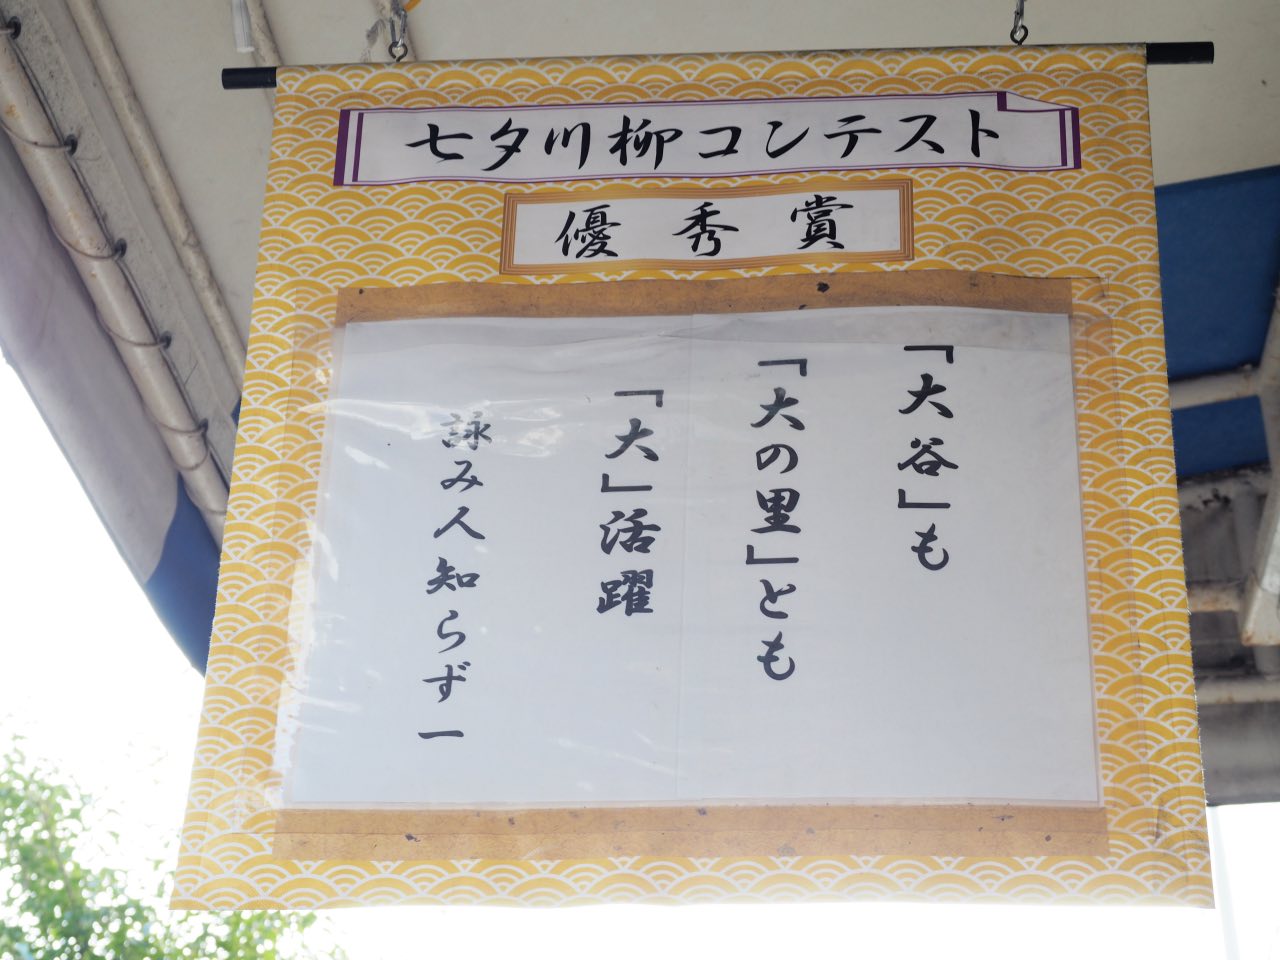 七夕川柳コンテスト
優秀賞
「大谷」も
「大の里」とも
「大」活躍
詠み人知らず一